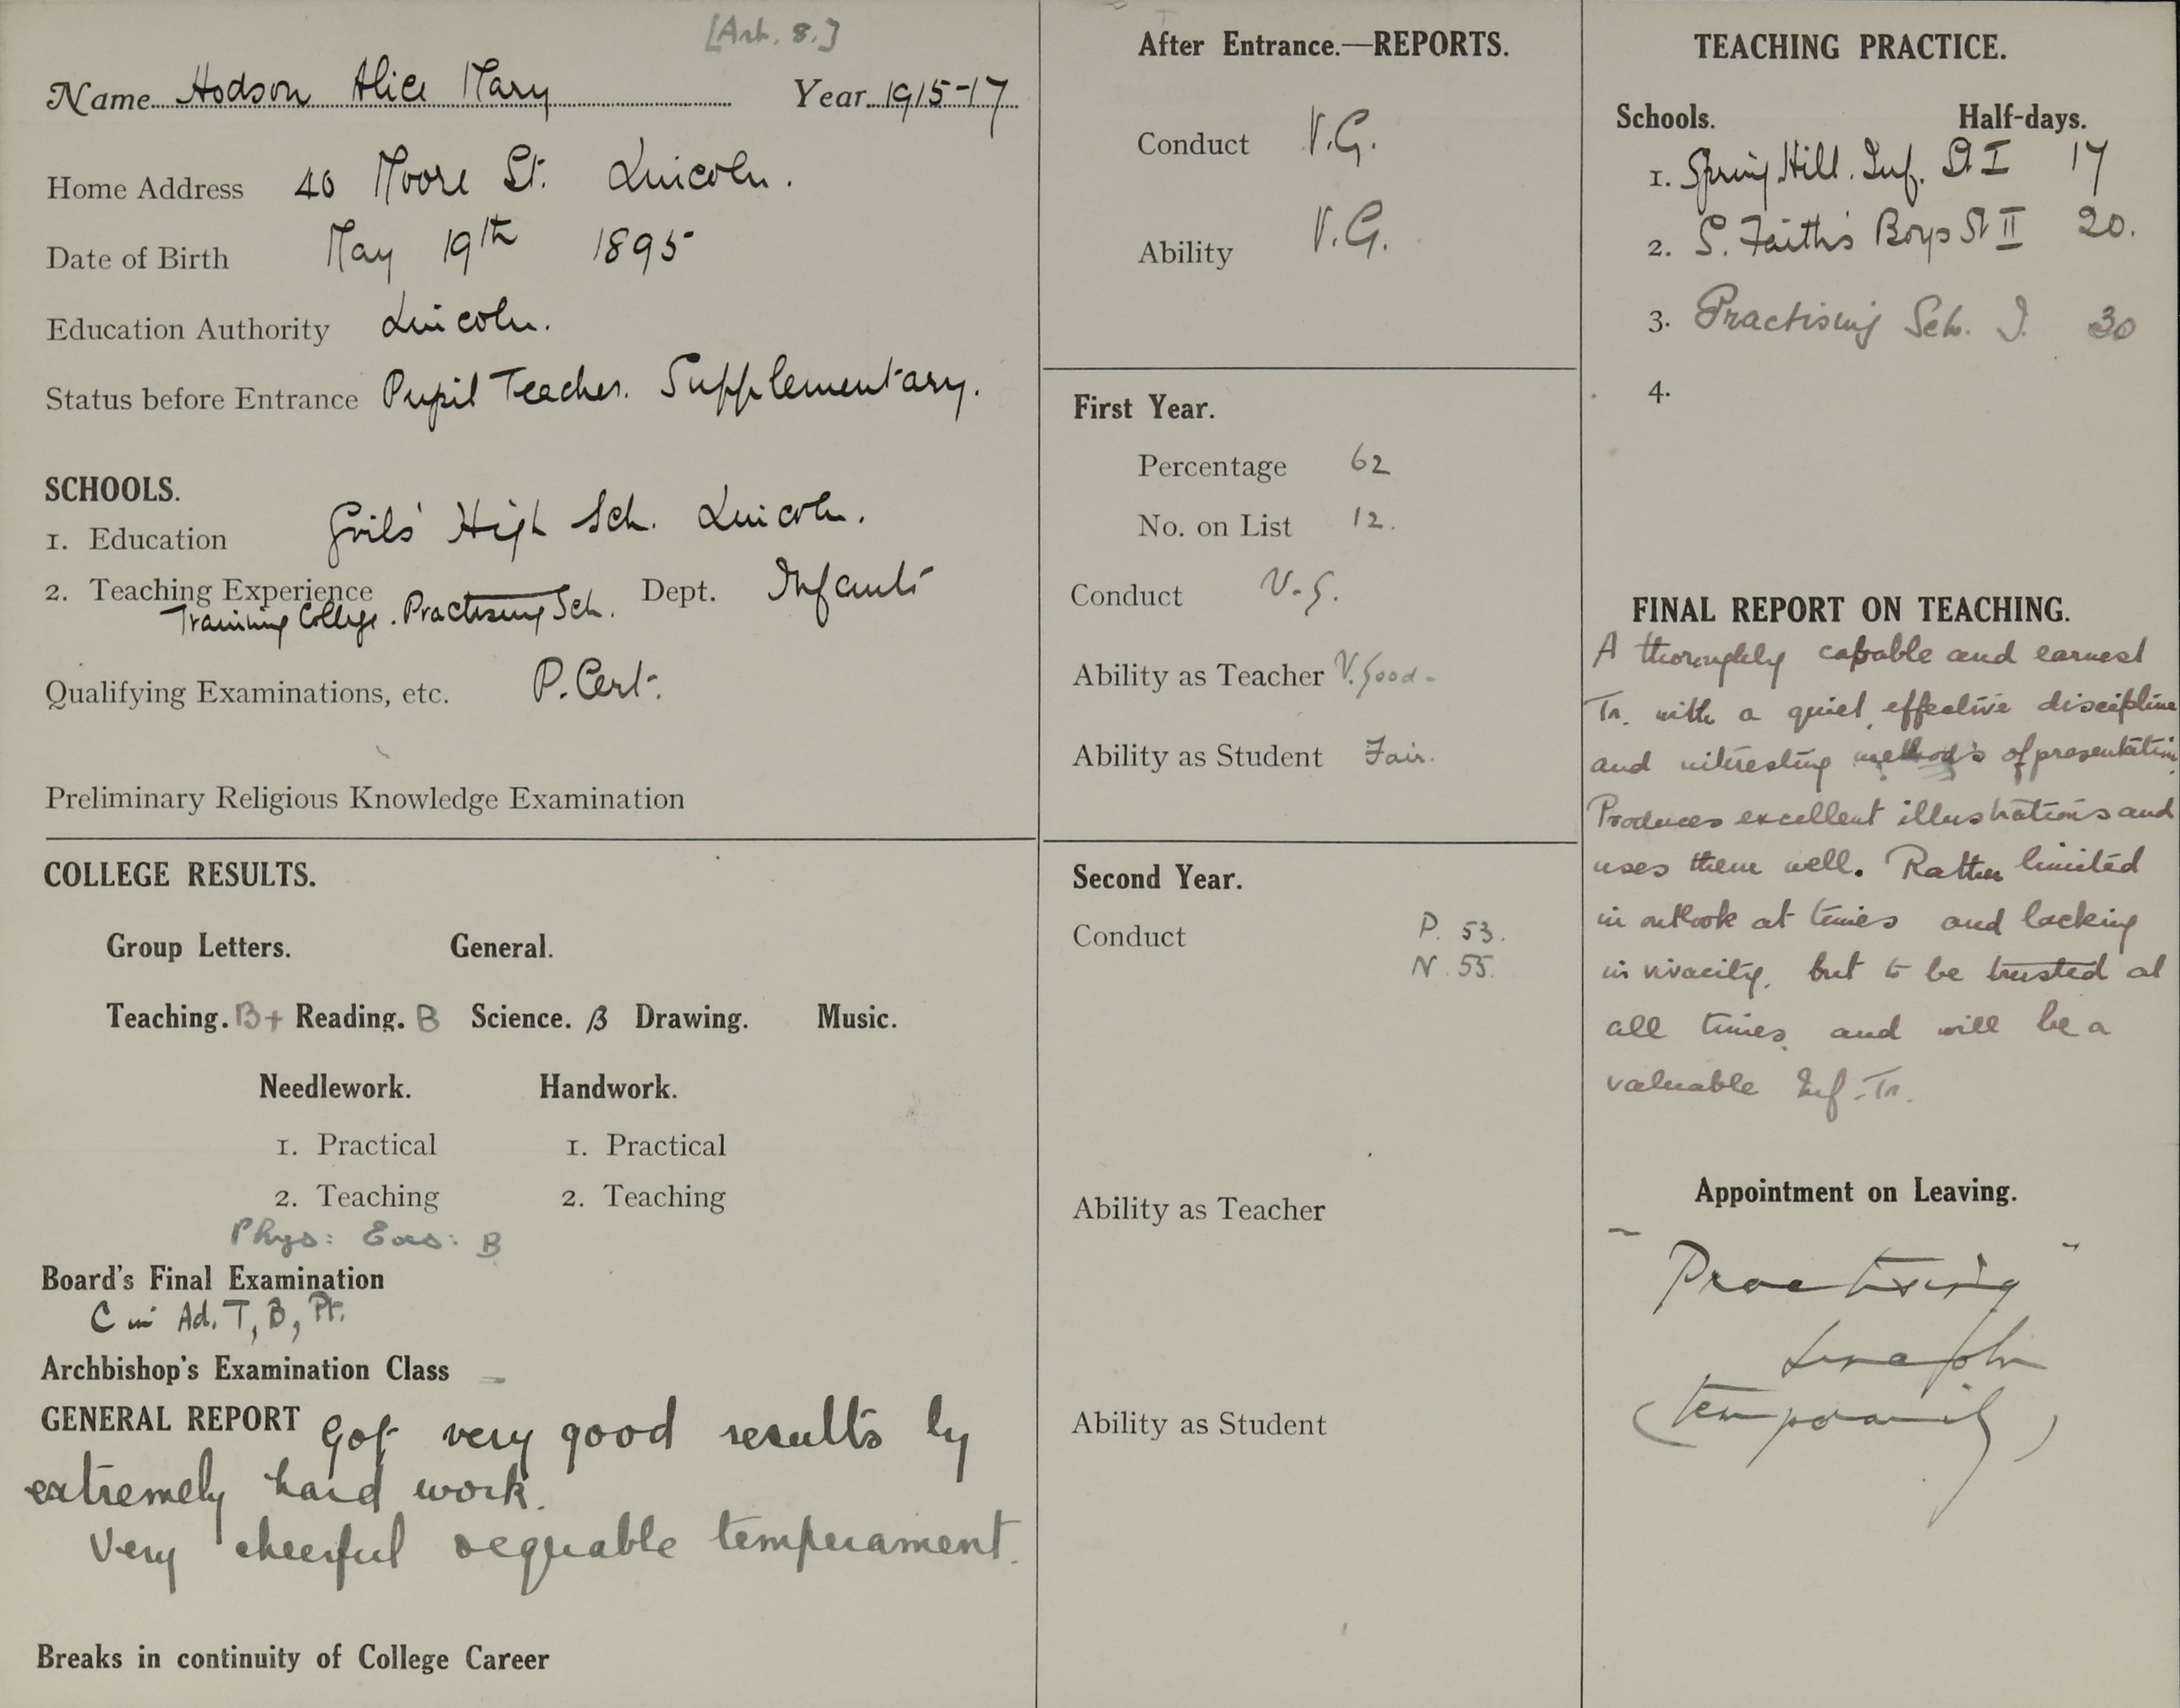 [Art. 8.]
Name Hodson Alice Mary Year 1915-17
Home Address 40 Moore St. Lincoln.
Date of Birth May 19th 1895
Education Authority Lincoln.
Status before Entrance Pupil Teacher. Supplementary.
SCHOOLS.
1. Education Girls' High Sch. Lincoln.
2. Teaching Experience Dept. Infants
Training College. Practising Sch.
Qualifying Examinations, etc. P. Cert.
Preliminary Religious Knowledge Examination
COLLEGE RESULTS.
Group Letters. General.
Teaching. B+ Reading. B Science. B Drawing. Music.
Needlework. Handwork.
1. Practical 1. Practical
2. Teaching 2. Teaching
Phys: Exs: B
Board's Final Examination
C in Ad. T, B, Pt.
Archbishop's Examination Class –
GENERAL REPORT Got very good results by
extremely hard work.
Very cheerful equable temperament.
Breaks in continuity of College Career
After Entrance.—REPORTS.
Conduct V.G.
Ability V.G.
First Year.
Percentage 62
No. on List 12.
Conduct V.G.
Ability as Teacher V. Good.
Ability as Student Fair.
Second Year.
Conduct P. 53.
N. 55.
Ability as Teacher
Ability as Student
TEACHING PRACTICE.
Schools. Half-days.
1. Spring Hill. Inf. St I 17
2. S. Faith's Boys St II 20.
3. Practising Sch. I. 30
4.
FINAL REPORT ON TEACHING.
A thoroughly capable and earnest
Tr. with a quiet, effective discipline
and interesting methods of presentation.
Produces excellent illustrations and
uses them well. Rather limited
in outlook at times and lacking
in vivacity, but to be trusted at
all times, and will be a
valuable Inf. Tr.
Appointment on Leaving.
"Practising"
Lincoln
(temporarily)